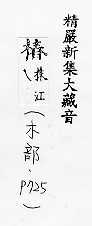 精嚴新集大藏音
椿 摏江(木部,P725)